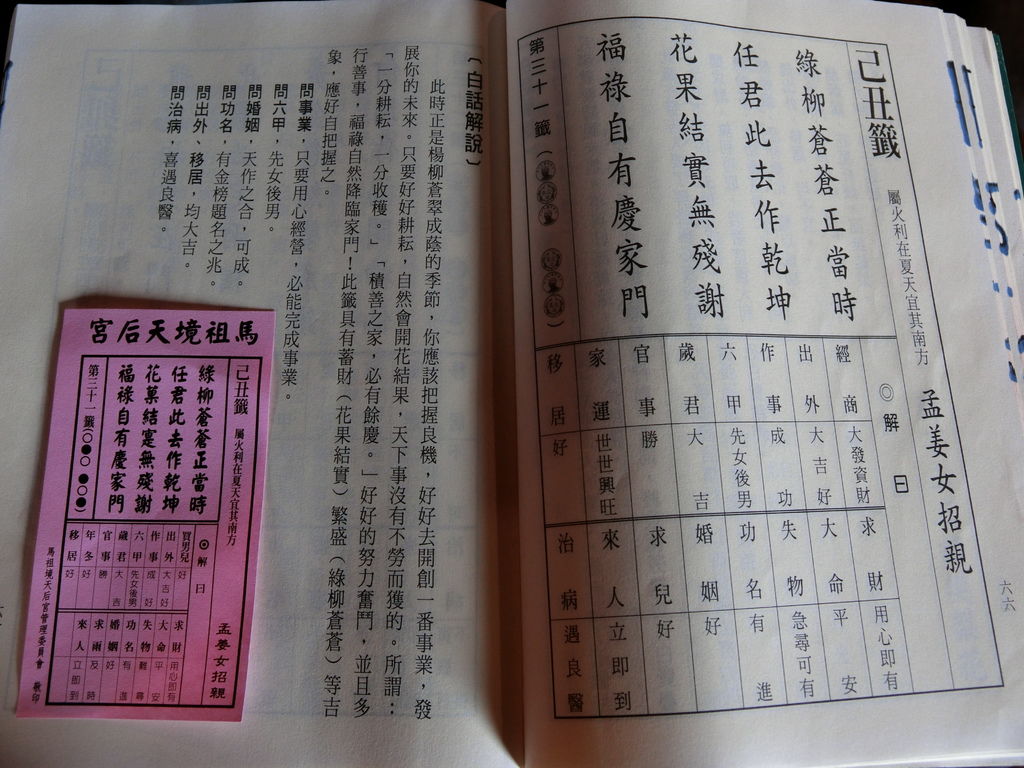 己丑籤
屬火利在夏天宜其南方
孟姜女招親
綠柳蒼蒼正當時
任君此去作乾坤
花果結實無殘謝
福祿自有慶家門
第三十一籤
◎解曰
經商 大發資財
出外 大吉好
作事 成功
六甲 先女後男
歲君 大吉
官事 勝
家運 世世興旺
移居 好
求財 用心即有
大命 平安
失物 急尋可有
功名 有進
婚姻 好
求兒 好
來人 立即到
治病 遇良醫
六六
(白話解說)
此時正是楊柳蒼翠成蔭的季節,你應該把握良機,好好去開創一番事業,發
展你的未來。只要好好耕耘,自然會開花結果,天下事沒有不勞而獲的。所謂:
「一分耕耘,一分收穫。」「積善之家,必有餘慶。」好好的努力奮鬥,並且多
行善事,福祿自然降臨家門!此籤具有蓄財(花果結實)繁盛(綠柳蒼蒼)等吉
象,應好自把握之。
問事業,只要用心經營,必能完成事業。
問六甲,先女後男。
問婚姻,天作之合,可成。
問功名,有金榜題名之兆。
問出外、移居,均大吉。
問治病,喜遇良醫。
宮后天境祖馬
己丑籤 屬火利在夏天宜其南方
孟姜女招親
綠柳蒼蒼正當時
任君此去作乾坤
花果結實無殘謝
福祿自有慶家門
第三十一籤(○●○ ●○●)
◎解曰
買男兒 好
出外 大吉好
作事 成好
六甲 先女後男
歲君 大吉
官事 勝
年冬 好
移居 好
求財 用心即有
大命 平安
失物 難尋
功名 有進
婚姻 好
求雨 及時
來人 立即到
馬祖境天后宮管理委員會 敬印